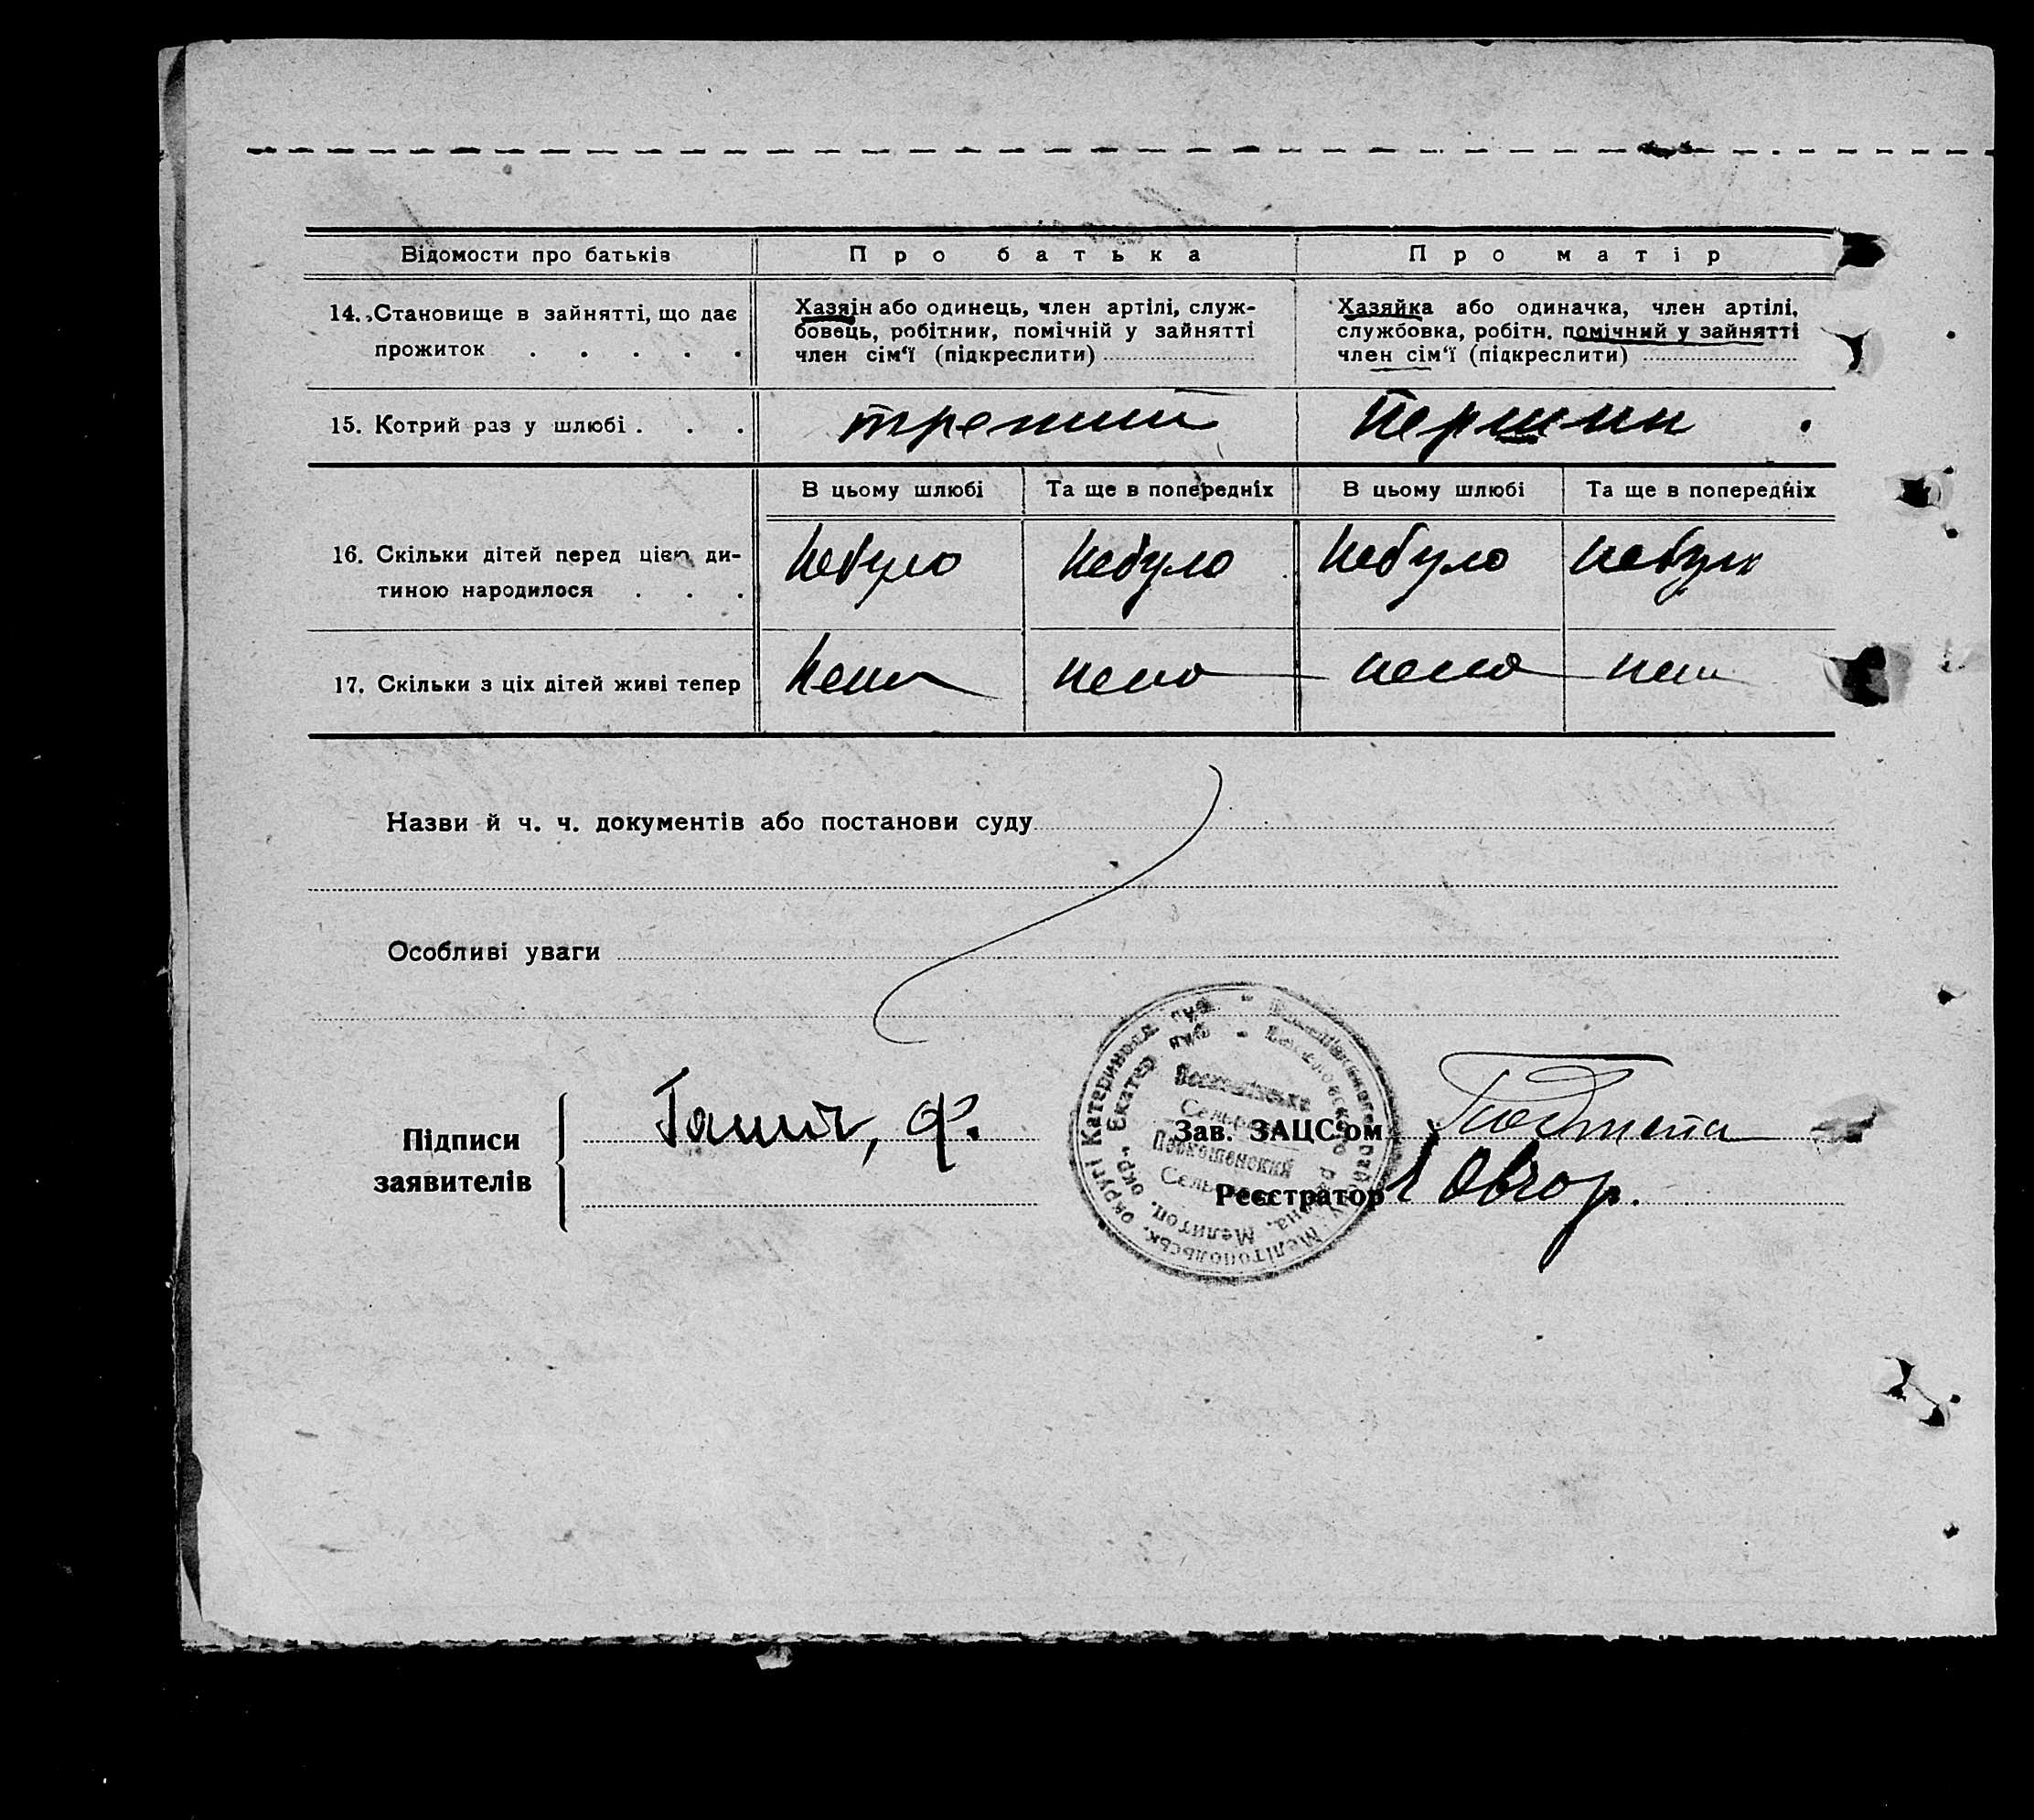 Відомости про батьків
Про батька
Про матір
14. Становище в зайнятті, що дає
прожиток . . . . .
Хазяїн або одинець, член артілі, служ-
бовець, робітник, помічній у зайнятті
член сім‘ї (підкреслити)
Хазяйка або одиначка, член артілі,
службовка, робітн. помічний у зайнятті
член сім‘ї (підкреслити)
15. Котрий раз у шлюбі . . .
третий
Першин
В цьому шлюбі
Та ще в попередніх
В цьому шлюбі
Та ще в попередніх
16. Скільки дітей перед цією ди-
тиною народилося . . .
небуло
небуло
небуло
небуло
17. Скільки з ціх дітей живі тепер
нема
нема
нема
нема
Назви й ч. ч. документів або постанови суду
Особливі уваги
Підписи
заявителів
Ф.
Зав. ЗАЦС‘ом
Реєстратор
округі Катериносл. губ.
Мелітопольськ.
окр. Екатер. губ.
Мелитоп.